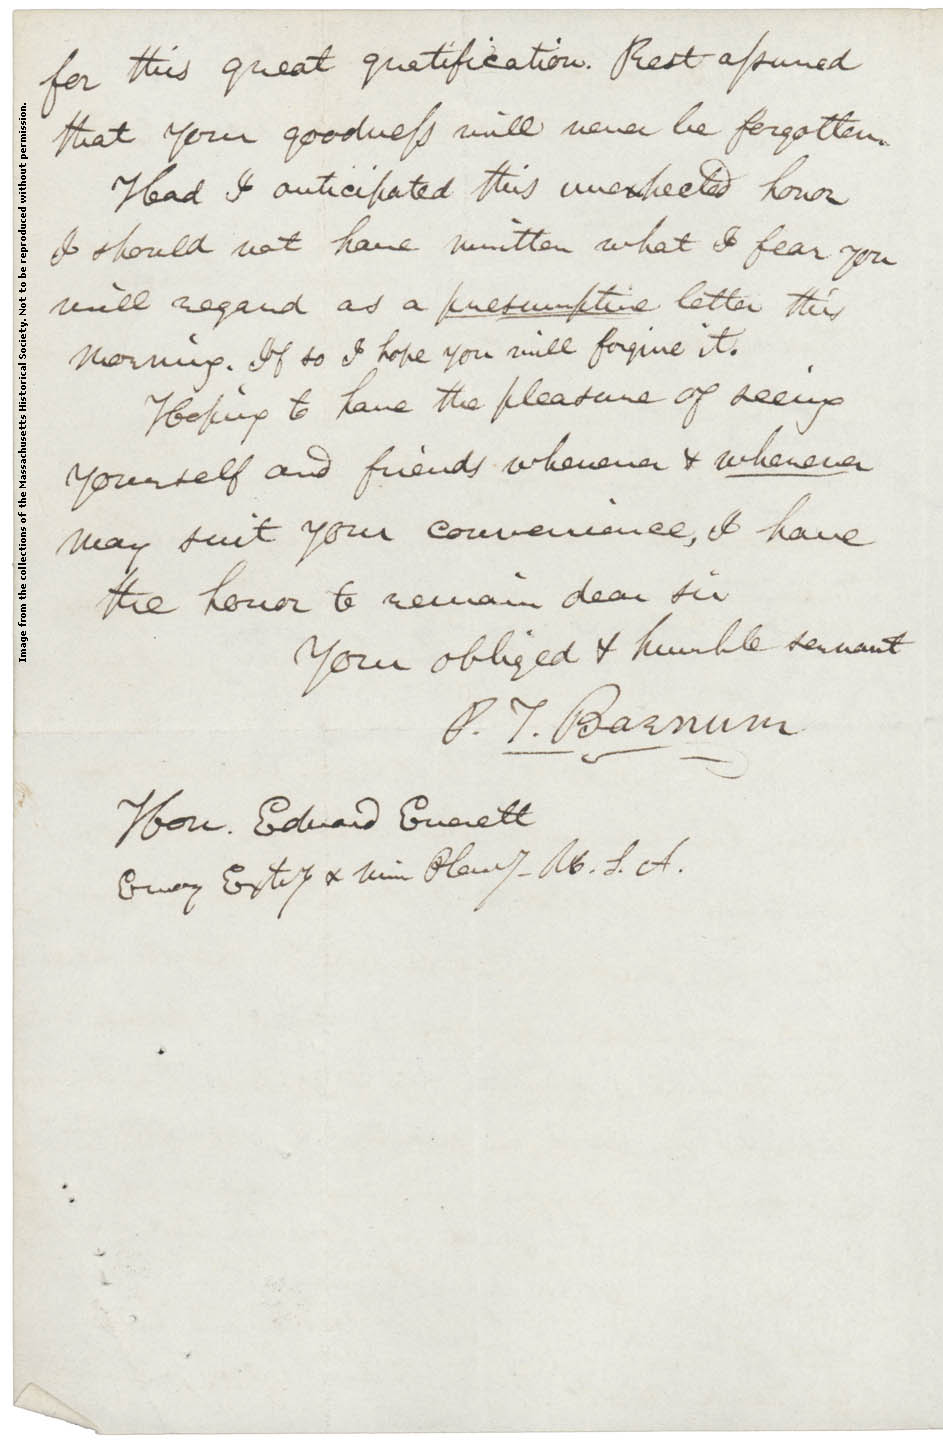 for this great gratification. Rest assured
that your goodness will never be forgotten.
Had I anticipated this unexpected honor
I should not have written what I fear you
will regard as a presumptive letter this
morning. If so I hope you will forgive it.
Hoping to have the pleasure of seeing
yourself and friends whenever & whenever
may suit your convenience, I have
the honor to remain dear sir
Your obliged & humble servant
P. T. Barnum
Hon. Edward Everett
Envoy Exty & Min Pleny - U. S. A.
Image from the collections of the Massachusetts Historical Society. Not to be reproduced without permission.